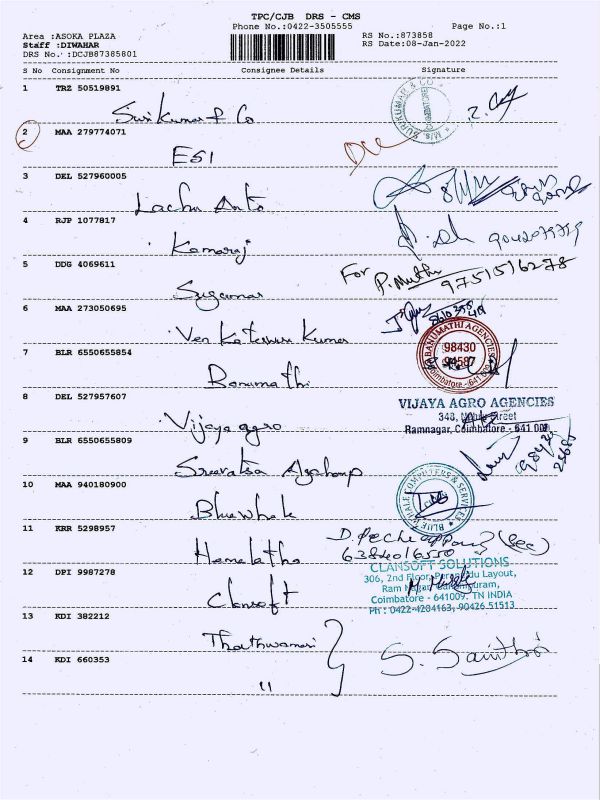 TPC/CJB DRS - CMS
Phone No.:0422-3505555 Page No.:1
Area :ASOKA PLAZA RS No.:873858
Staff :DIWAHAR RS Date:08-Jan-2022
DRS No.:DCJB87385801
S No Consignment No Consignee Details Signature
1 TRZ 50519891
Surikumar & Co
2 MAA 279774071
ESI
3 DEL 527960005
4 RJP 1077817
Kamaraj 9042079729
5 DDG 4069611
For P. Muthu 9751516278
Sugumar
6 MAA 273050695
Venkateswra Kumar
7 BLR 6550655854
BANUMATHI AGENCIES
98430
94587
Coimbatore - 641 001
Banumathi
8 DEL 527957607
VIJAYA AGRO AGENCIES
Vijaya agro
348, Street
Ramnagar, Coimbatore - 641 009
9 BLR 6550655809
Sreevatsa
10 MAA 940180900
BLUE WHALE COMPUTERS & SERVICES
Bluewhale
11 KRR 5298957
Hemalatha 6384016550
12 DPI 9987278
CLANSOFT SOLUTIONS
306, 2nd Floor, Layout,
Ram Nagar,
Coimbatore - 641009. TN INDIA
Ph : 0422-4204163, 90426 51513
Clansoft
13 KDI 382212
14 KDI 660353
"